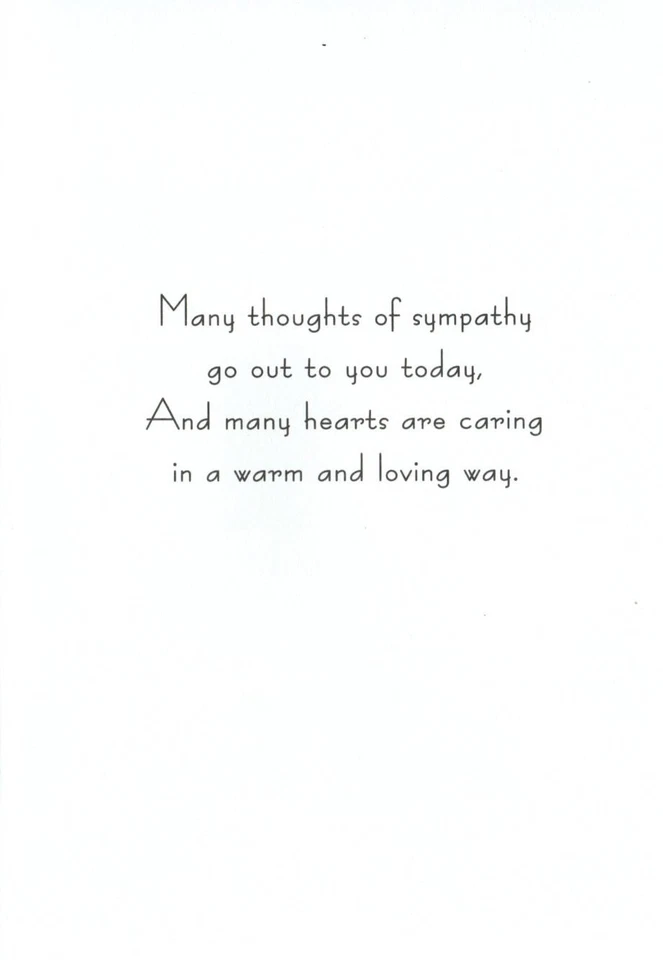 Many thoughts of sympathy
go out to you today,
And many hearts are caring
in a warm and loving way.